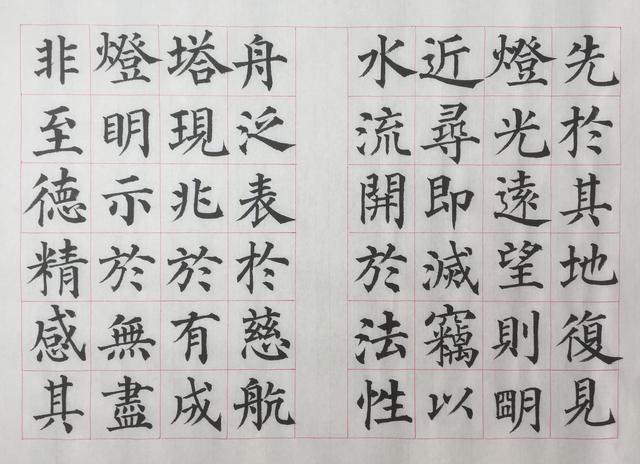 先於其地復見
燈光遠望則朙
近尋即滅竊以
水流開於法性
舟泛表於慈航
塔現兆於有成
燈明示於無盡
非至德精感其